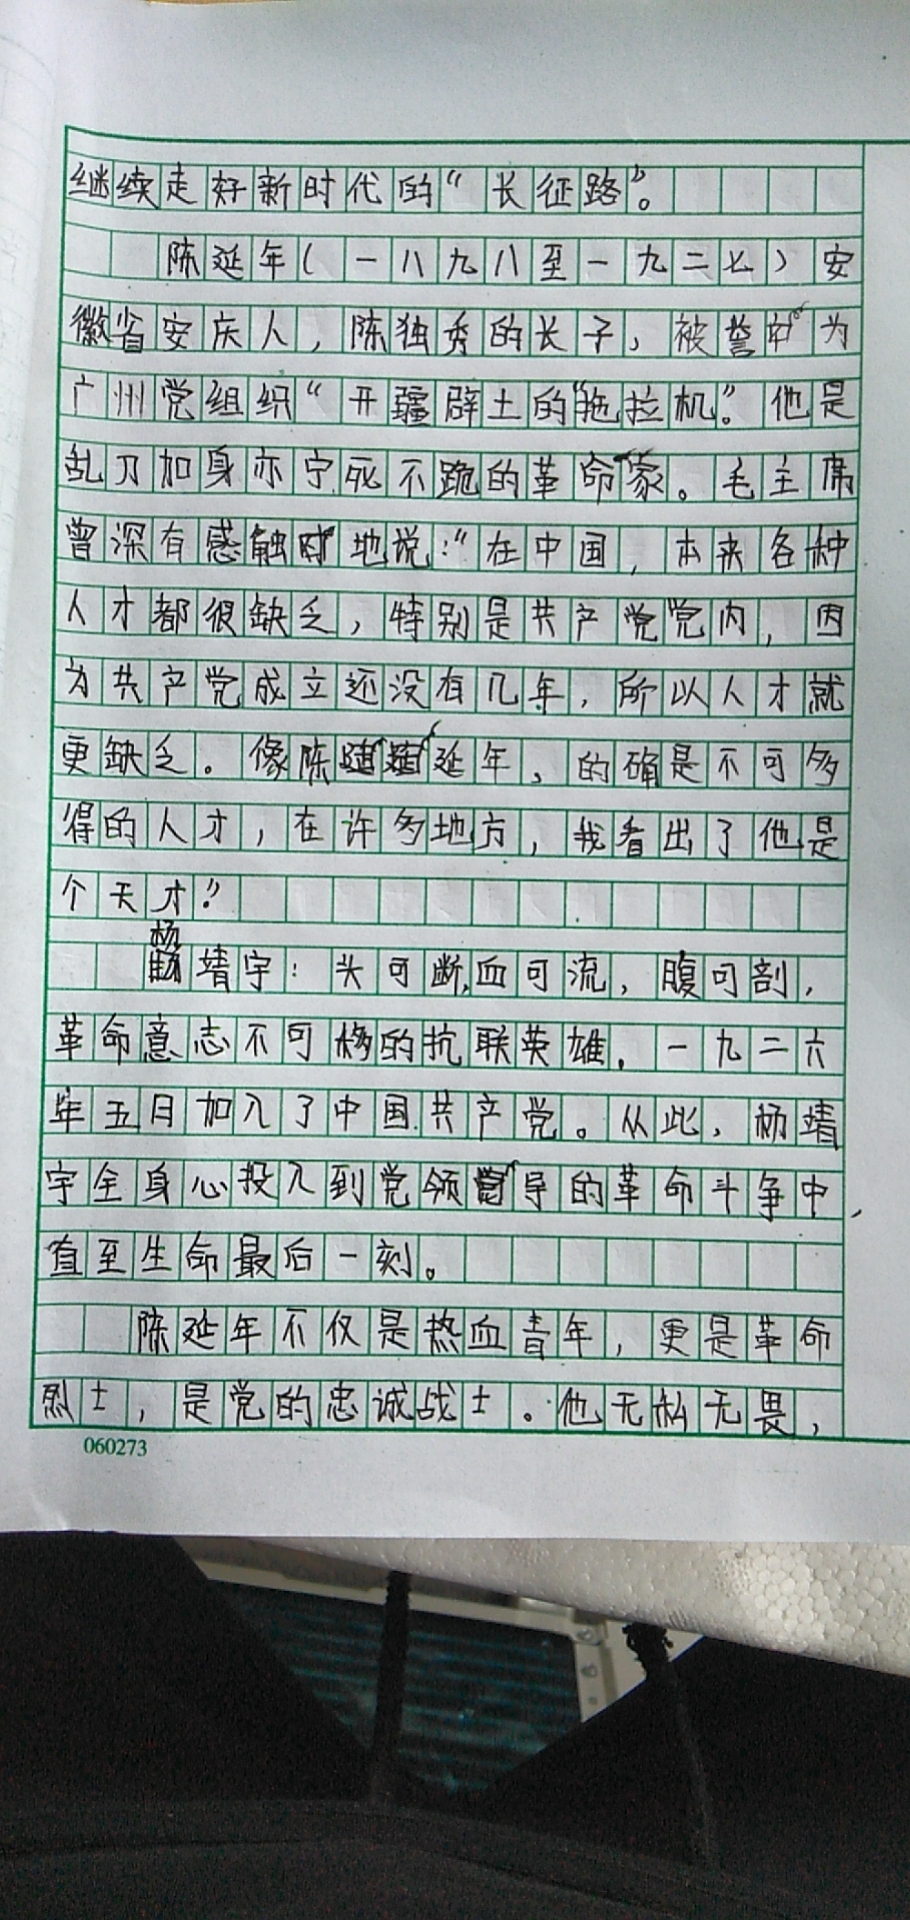 继续走好新时代的“长征路”。
陈延年(一八九八至一九二七)安
徽省安庆人,陈独秀的长子,被誉为
广州党组织“开疆辟土的“拖拉机”。他是
乱刀加身亦宁死不跪的革命家。毛主席
曾深有感触地说:“在中国,本来各种
人才都很缺乏,特别是共产党党内,因
为共产党成立还没有几年,所以人才就
更缺乏。像陈延年,的确是不可多
得的人才,在许多地方,我看出了他是
个天才”
杨靖宇:头可断,血可流,腹可剖,
革命意志不可移的抗联英雄.一九二六
年五月加入了中国共产党。从此,杨靖
宇全身心投入到党领导的革命斗争中,
直至生命最后一刻。
陈延年不仅是热血青年,更是革命
烈士,是党的忠诚战士。他无私无畏,
060273